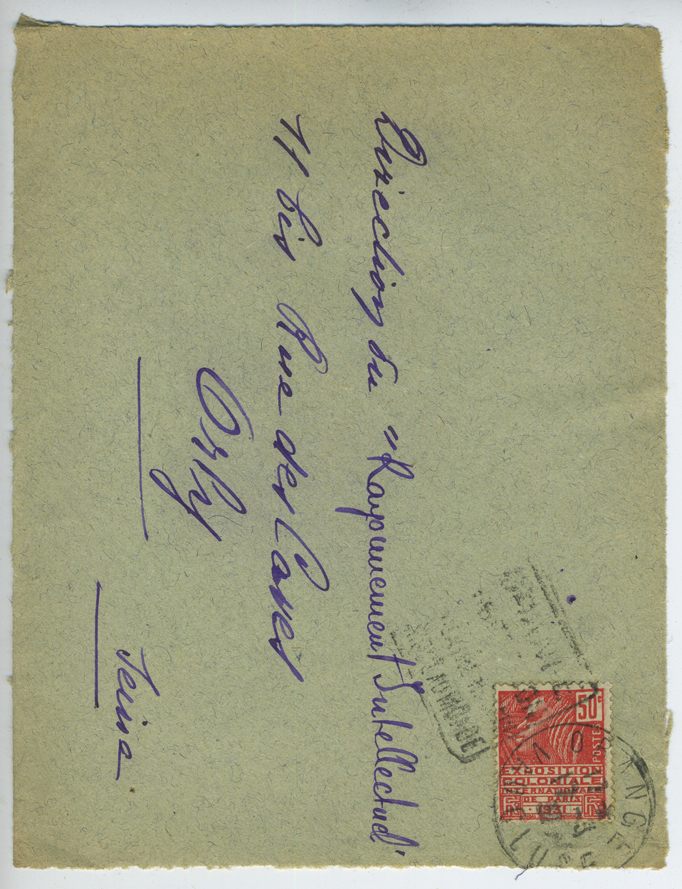 Direction du "Rayonnement Intellectuel"
11 bis Rue des Caves
Orly
Seine
50c
POSTES
EXPOSITION
COLONIALE
INTERNATIONALE
DE PARIS
1931
DU MONDE
ANGE